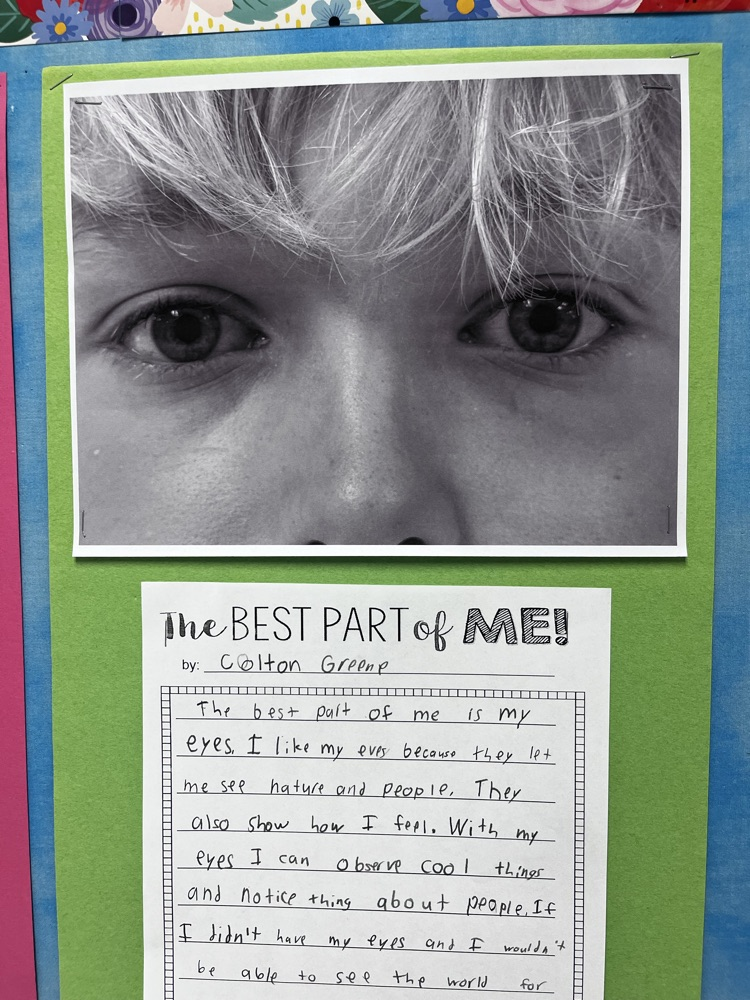 The BEST PART of ME!
by: Colton Greene
The best part of me is my
eyes. I like my eyes because they let
me see nature and people. They
also show how I feel. With my
eyes I can observe cool things
and notice thing about people. If
I didn't have my eyes and I wouldn't
be able to see the world for